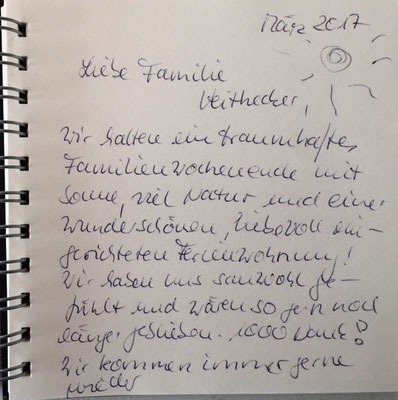 März 2017
Liebe Familie
Veithecker,
Wir hatten ein traumhaftes
Familienwochenende mit
Sonne, viel Natur und einer
wunderschönen, liebevoll ein-
gerichteten Ferienwohnung!
Wir haben uns sauwohl ge-
fühlt und wären so gern noch
länger geblieben. 1000 Dank!
Wir kommen immer gerne
wieder